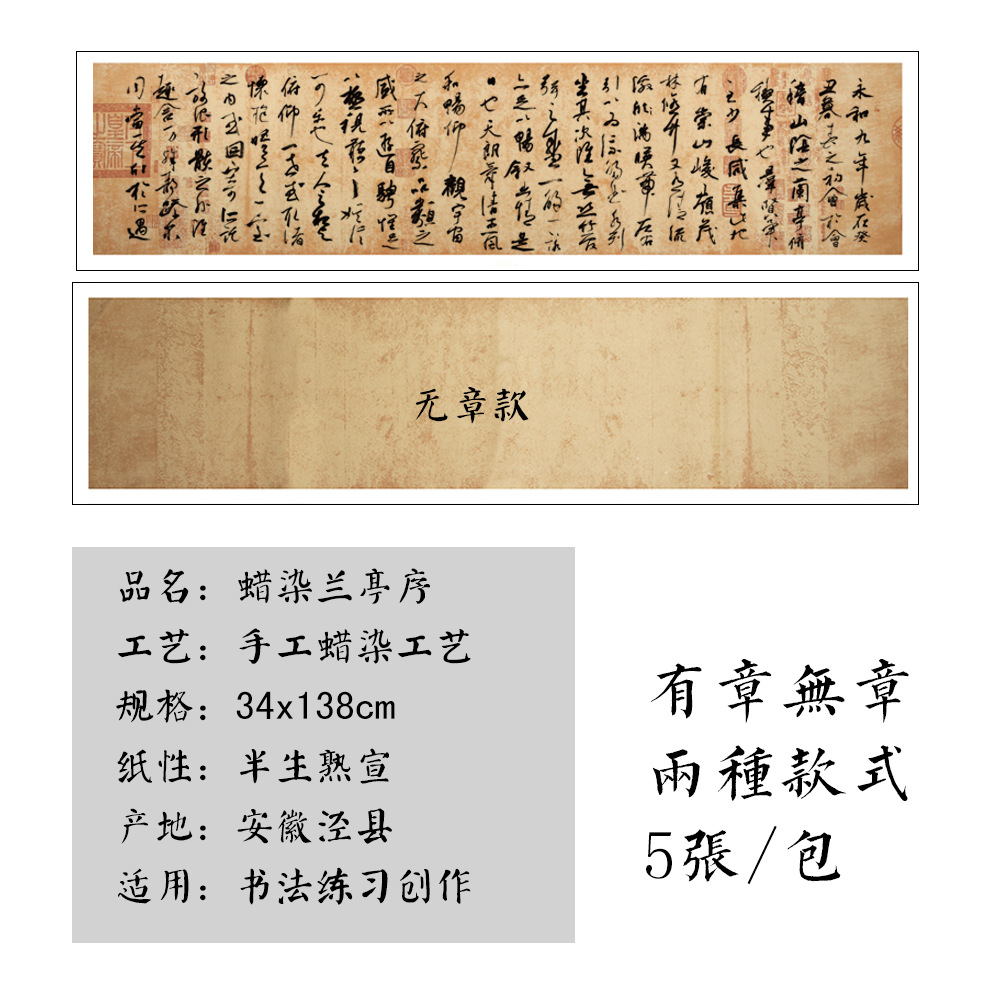 永和九年歲在癸
丑暮春之初會於會
稽山陰之蘭亭脩
禊事也羣賢畢
至少長咸集此地
有崇山峻嶺茂
林脩竹又有清流
激湍映帶左右
引以為流觴曲水列
坐其次雖無絲竹管
弦之盛一觴一詠
亦足以暢敘幽情是
日也天朗氣清惠風
和暢仰觀宇宙
之大俯察品類之
盛所以遊目騁懷足
以極視聽之娛信
可樂也夫人之相與
俯仰一世或取諸
懷抱悟言一室
之內或因寄所託
放浪形骸之外雖
趣舍萬殊靜躁不
同當其欣於所遇
无章款
品名：蜡染兰亭序
工艺：手工蜡染工艺
规格：34x138cm
纸性：半生熟宣
产地：安徽泾县
适用：书法练习创作
有章無章
兩種款式
5張/包